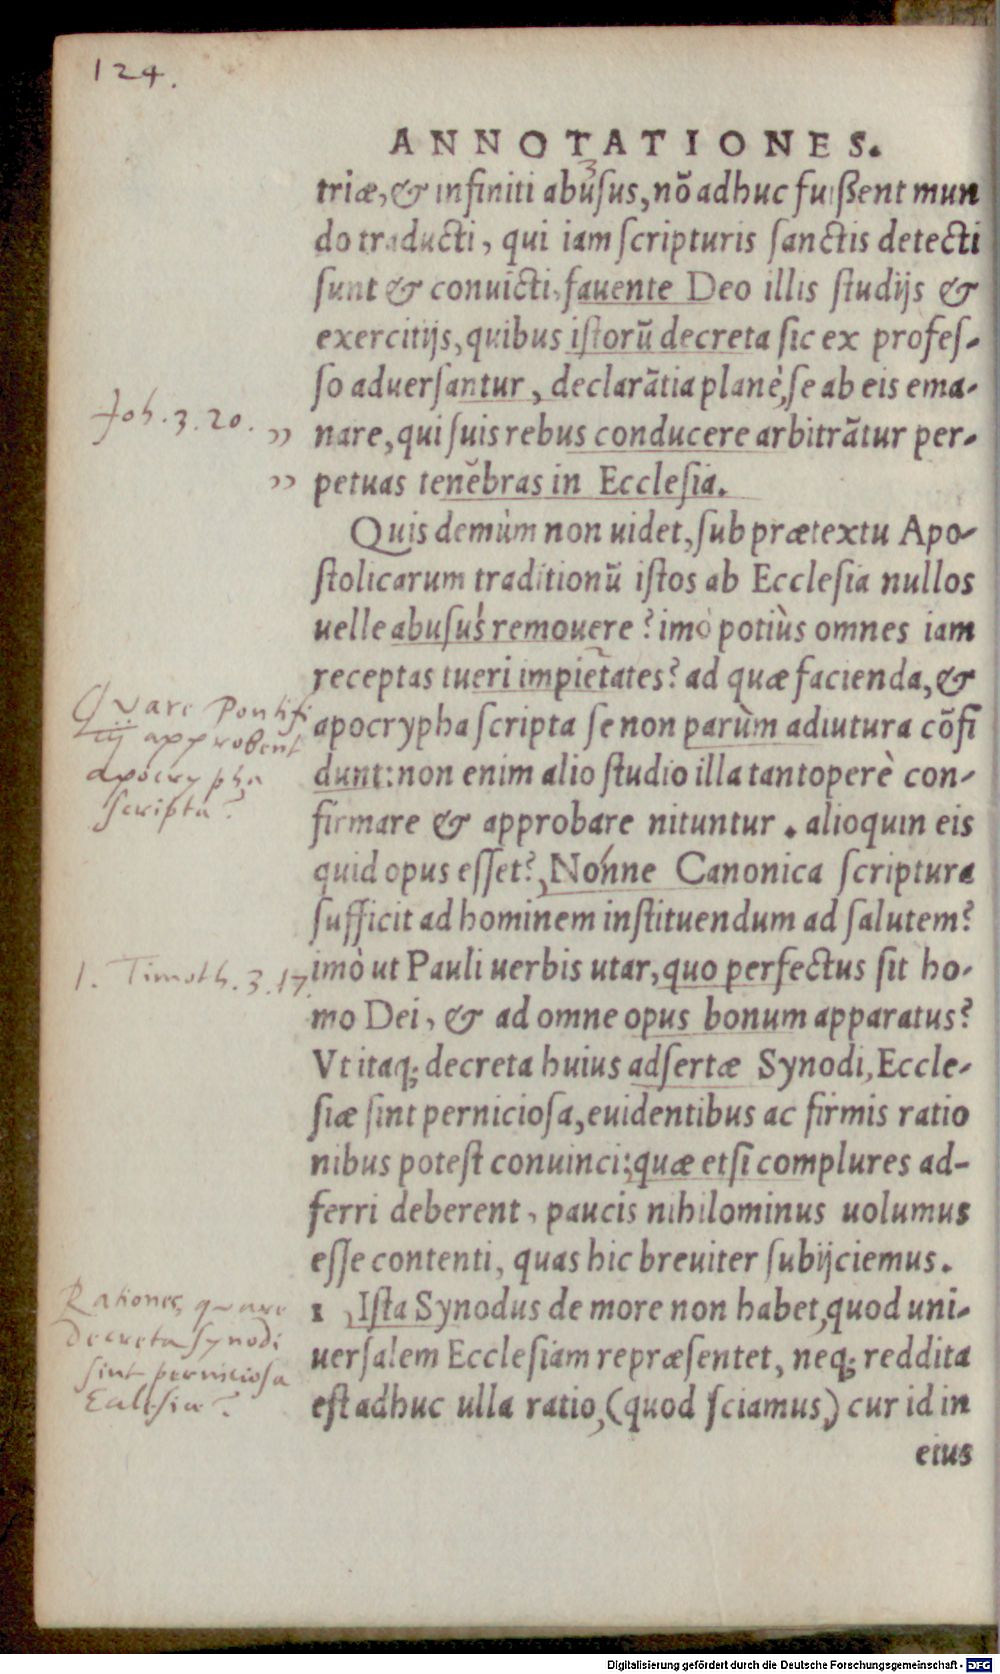 124.
ANNOTATIONES.
triæ, & infiniti abusus, nō adhuc fuißent mun
do traducti, qui iam scripturis sanctis detecti
sunt & conuicti, fauente Deo illis studijs &
exercitijs, quibus istorū decreta sic ex profes-
so aduersantur, declarātia planè, se ab eis ema-
Joh. 3. 20.
nare, qui suis rebus conducere arbitrātur per-
petuas tenebras in Ecclesia.
Quis demùm non uidet, sub prætextu Apo-
stolicarum traditionū istos ab Ecclesia nullos
uelle abusus remouere? imò potiùs omnes iam
receptas tueri impietates? ad quæ facienda, &
Quare Pontifi
cij approbent
apocrypha
scripta?
apocrypha scripta se non parùm adiutura cōfi
dunt: non enim alio studio illa tantoperè con-
firmare & approbare nituntur. alioquin eis
quid opus esset? Nonne Canonica scriptura
sufficit ad hominem instituendum ad salutem?
1. Timoth. 3. 17.
imò ut Pauli uerbis utar, quo perfectus sit ho-
mo Dei, & ad omne opus bonum apparatus?
Vt itaq; decreta huius adsertæ Synodi, Eccle-
siæ sint perniciosa, euidentibus ac firmis ratio
nibus potest conuinci: quæ etsi complures ad-
ferri deberent, paucis nihilominus uolumus
esse contenti, quas hic breuiter subijciemus.
Rationes, quare
decreta synodi
sint perniciosa
Ecclesiæ?
1 Ista Synodus de more non habet, quod uni-
uersalem Ecclesiam repræsentet, neq; reddita
est adhuc ulla ratio, (quod sciamus,) cur id in
eius
Digitalisierung gefördert durch die Deutsche Forschungsgemeinschaft - DFG